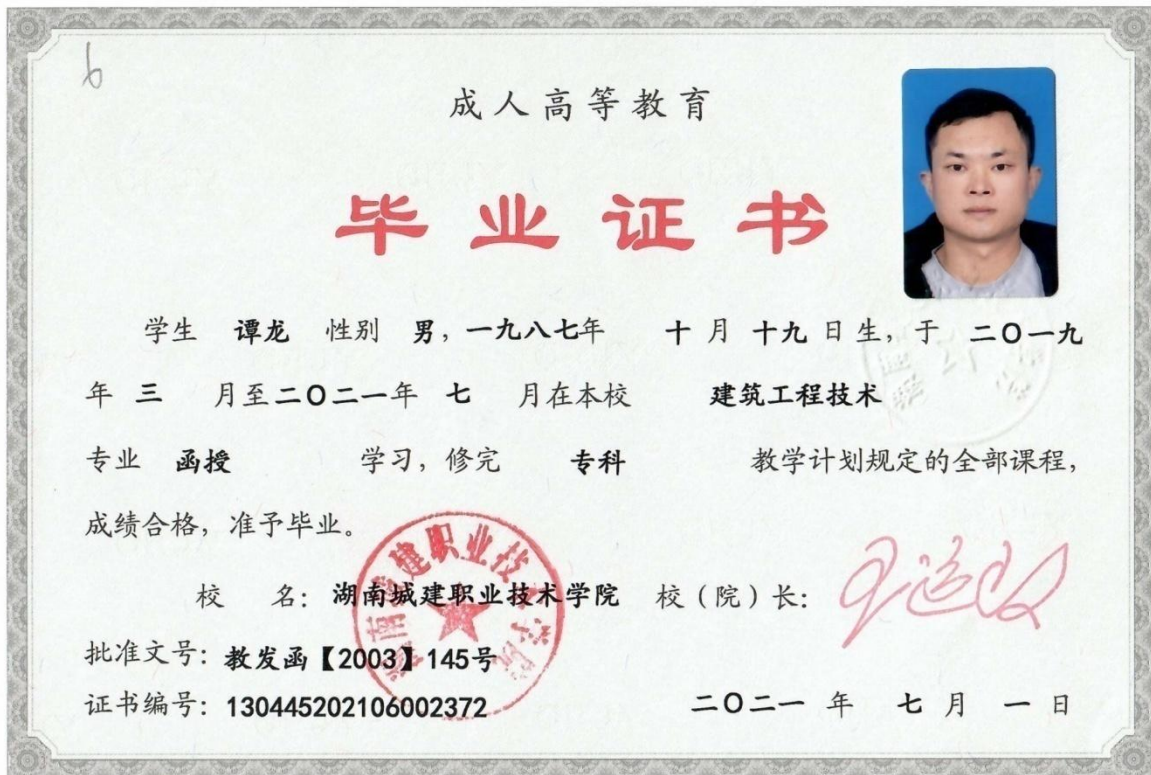 6
成人高等教育
毕业证书
学生 谭龙 性别 男，一九八七年 十月十九日生，于 二〇一九
年 三 月至二〇二一年 七 月在本校 建筑工程技术
专业 函授 学习，修完 专科 教学计划规定的全部课程，
成绩合格，准予毕业。
校 名：湖南城建职业技术学院 校（院）长：
湖南城建职业技术学院
批准文号：教发函【2003】145号
证书编号：130445202106002372 二〇二一 年 七 月 一 日